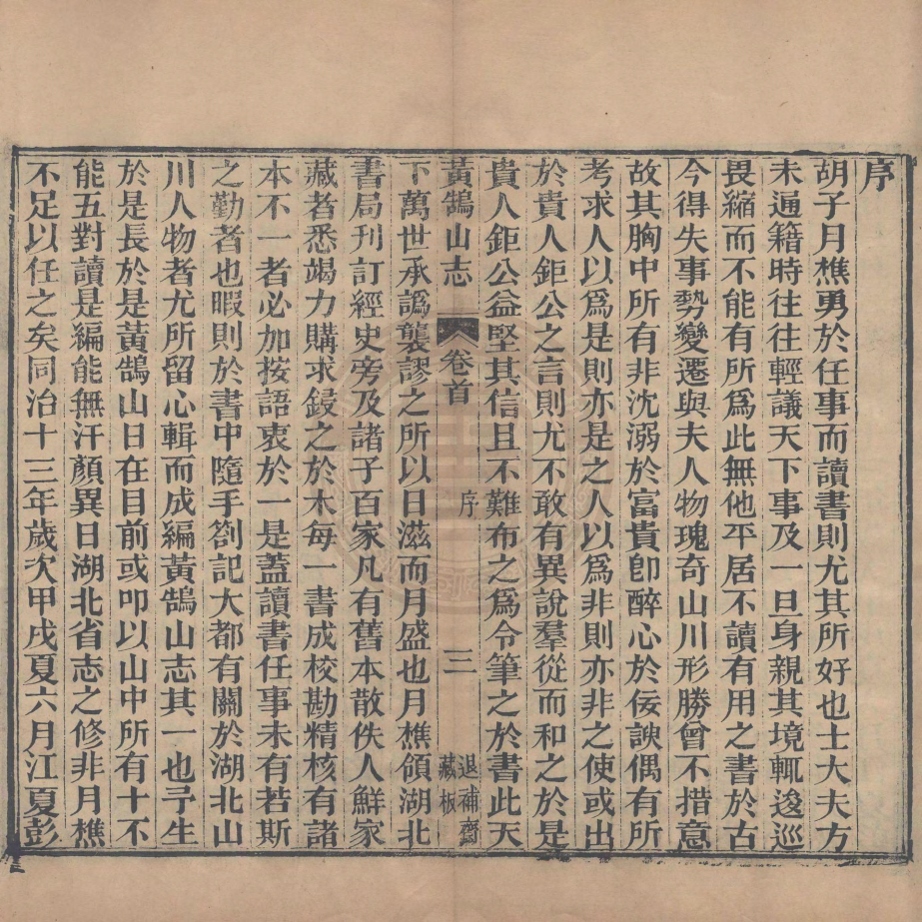 序
胡子月樵勇於任事而讀書則尤其所好也士大夫方
未通籍時往往輕議天下事及一旦身親其境輒逡巡
畏縮而不能有所爲此無他平居不讀有用之書於古
今得失事勢變遷與夫人物瑰奇山川形勝曾不措意
故其胸中所有非沈溺於富貴卽醉心於佞諛偶有所
考求人以爲是則亦是之人以爲非則亦非之使或出
於貴人鉅公之言則尤不敢有異說羣從而和之於是
貴人鉅公益堅其信且不難布之爲令筆之於書此天
黃鵠山志 卷首 序 三 退補齋藏板
下萬世承譌襲謬之所以日滋而月盛也月樵領湖北
書局刊訂經史旁及諸子百家凡有舊本散佚人鮮家
藏者悉竭力購求鋟之於木每一書成校勘精核有諸
本不一者必加按語衷於一是蓋讀書任事未有若斯
之勤者也暇則於書中隨手劄記大都有關於湖北山
川人物者尤所留心輯而成編黃鵠山志其一也予生
於是長於是黃鵠山日在目前或叩以山中所有十不
能五對讀是編能無汗顏異日湖北省志之修非月樵
不足以任之矣同治十三年歲次甲戌夏六月江夏彭